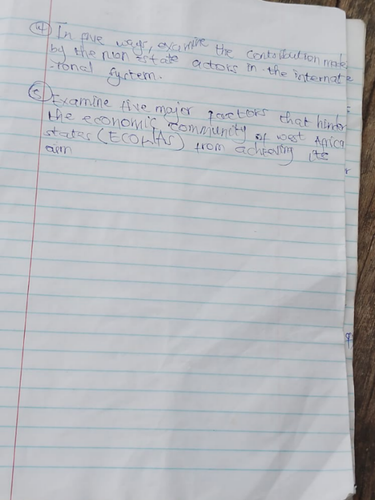 In five ways, examine the contribution made
by the non state actors in the internate
-ional system.
Examine five major factors that hinder
the economic community of west Africa
states (ECOWAS) from achieving its
aim